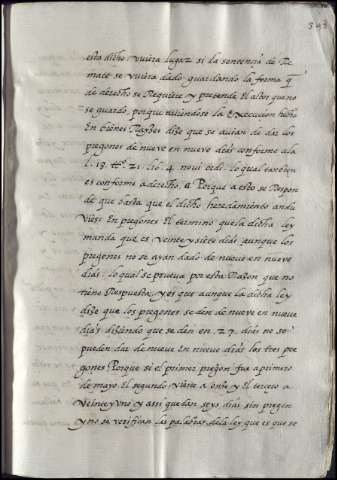 343
esto dicho, vuiera lugar si la sentençia de Re
mate se vuiera dado guardando la forma q̃
de derecho se Requiere y pretende El alon que no
se guardo, porque haziendose la Execuçion
En bienes Rayzes dize que se auian de dar los
pregones de nueve en nueve dias conforme a la
l. 19. tit. 21. lib. 4. lo qual tanbien
es conforme a derecho. Porque a esto se Respon
de que basta que el dicho heredamiento ando
En pregones El termino que la dicha ley
manda que es, veinte y siete dias aunque los
pregones no se ayan dado de nueve en nueve
dias, lo qual se prueva por esta Razon que no
tiene Respuesta, y es que aunque la dicha ley
dize que los pregones se den de nueve en nueve
dias diziendo que se den en .27. dias no se
pueden dar de nueve En nueve dias los tres pre
gones Porque si el primer pregon fue a primero
de mayo El segundo viene a onze y El tercero a
veinte y vno y assi quedan seys dias sin pregon
y no se verifican las palabras de la ley que es que se